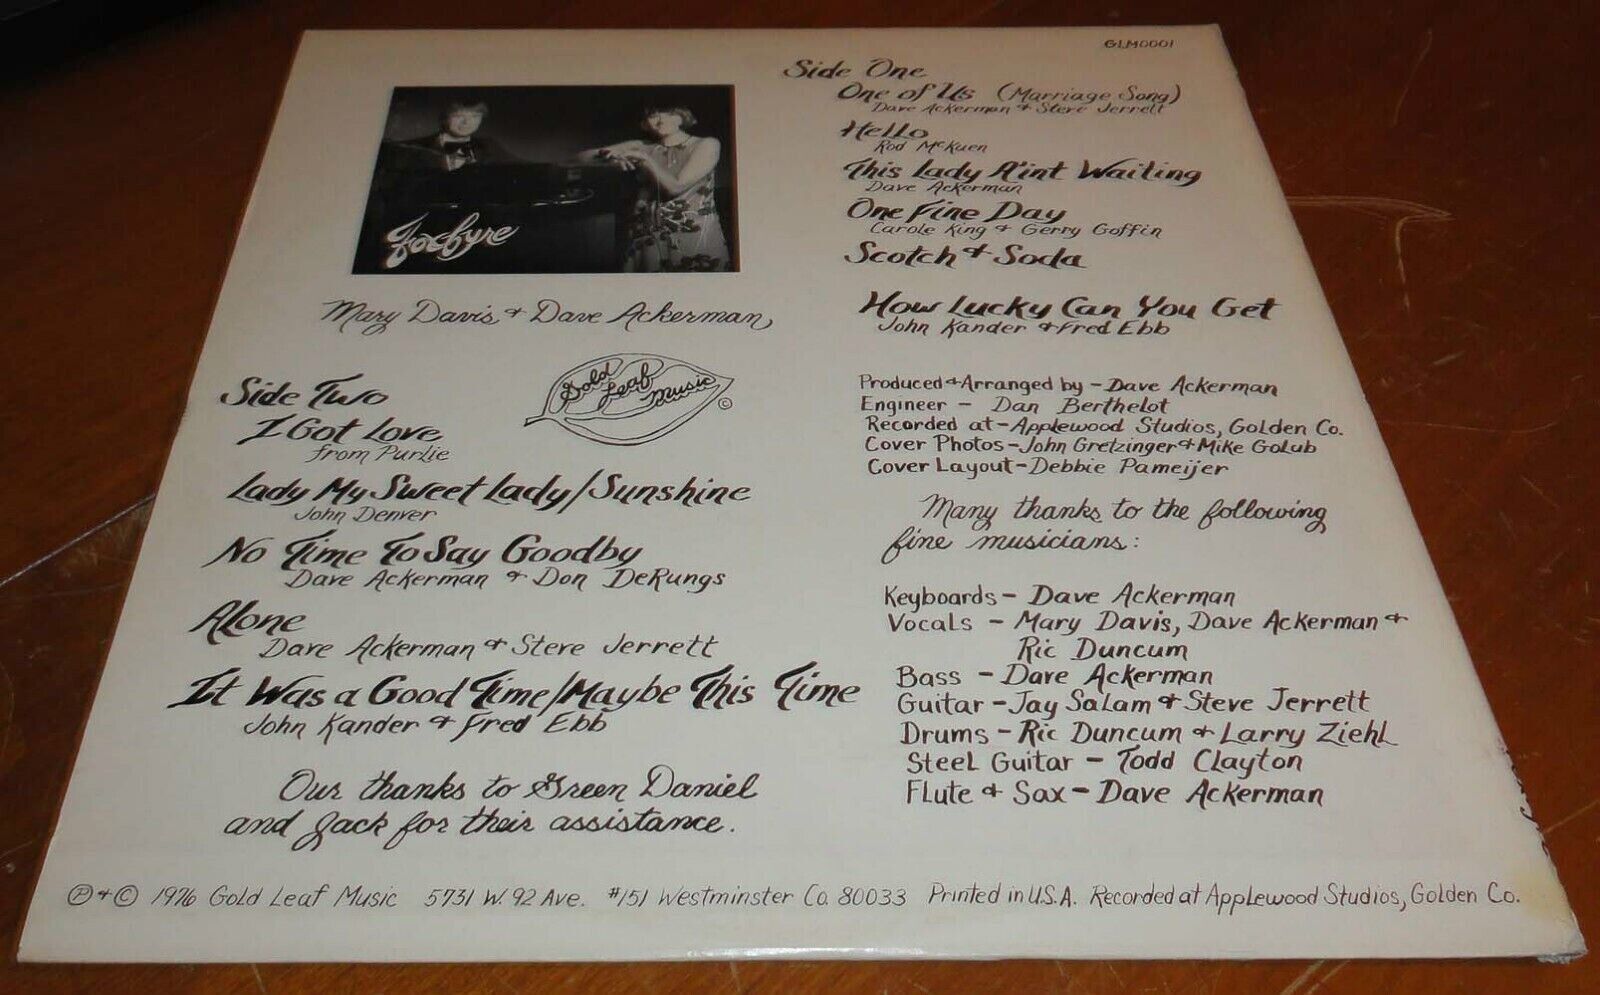 GLM0001
Foxfyre
Mary Davis & Dave Ackerman
Gold Leaf Music ©
Side One
One of Us (Marriage Song)
Dave Ackerman & Steve Jerrett
Hello
Rod McKuen
This Lady A'int Waiting
Dave Ackerman
One Fine Day
Carole King & Gerry Goffin
Scotch & Soda
How Lucky Can You Get
John Kander & Fred Ebb
Side Two
I Got Love
from Purlie
Lady My Sweet Lady/Sunshine
John Denver
No Time To Say Goodby
Dave Ackerman & Don DeRungs
Alone
Dave Ackerman & Steve Jerrett
It Was a Good Time/Maybe This Time
John Kander & Fred Ebb
Our thanks to Green Daniel
and Jack for their assistance.
Produced & Arranged by - Dave Ackerman
Engineer - Dan Berthelot
Recorded at - Applewood Studios, Golden Co.
Cover Photos - John Gretzinger & Mike Golub
Cover Layout - Debbie Pameijer
Many thanks to the following
fine musicians:
Keyboards - Dave Ackerman
Vocals - Mary Davis, Dave Ackerman &
Ric Duncum
Bass - Dave Ackerman
Guitar - Jay Salam & Steve Jerrett
Drums - Ric Duncum & Larry Ziehl
Steel Guitar - Todd Clayton
Flute & Sax - Dave Ackerman
℗ & © 1976 Gold Leaf Music 5731 W. 92 Ave. #151 Westminster Co. 80033 Printed in U.S.A. Recorded at Applewood Studios, Golden Co.